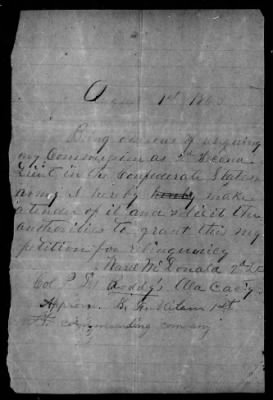 August 1st 1863
Being desirous of resigning
my Commission as 2d Second
Lieut in the Confederate States
army I hereby hereby make
a tender of it and solicit the
authorities to grant this my
petition for
Ward McDonald 2nd Lt
Co P Roddy's Ala Cavy
Approved 1st Lt
commanding company